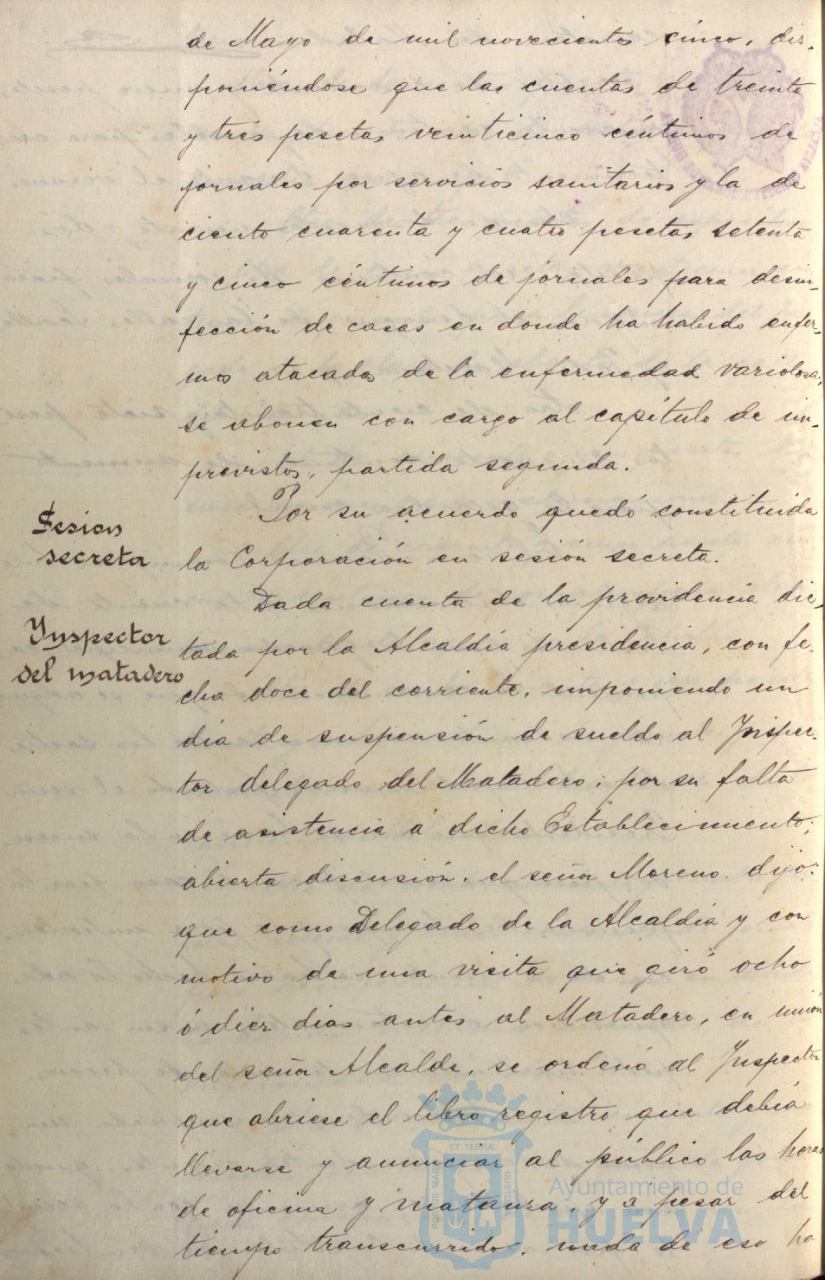 de Mayo de mil novecientos cinco, dis-
poniéndose que las cuentas de treinta
y tres pesetas veinticinco céntimos de
jornales por servicios sanitarios y la de
ciento cuarenta y cuatro pesetas setenta
y cinco céntimos de jornales para desin-
fección de casas en donde ha habido enfer-
mos atacados de la enfermedad variolosa,
se abonen con cargo al capítulo de im-
previstos, partida segunda.
Sesion
secreta
Por su acuerdo quedó constituida
la Corporación en sesión secreta.
Ynspector
del matadero
Dada cuenta de la providencia dic-
tada por la Alcaldía presidencia, con fe-
cha doce del corriente, imponiendo un
día de suspensión de sueldo al Ynspec-
tor delegado del Matadero, por su falta
de asistencia á dicho Establecimiento;
abierta discusión, el señor Moreno dijo:
que como Delegado de la Alcaldía y con
motivo de una visita que giró ocho
ó diez dias antes al Matadero, en unión
del señor Alcalde, se ordenó al Ynspector
que abriese el libro registro que debía
llevarse y anunciar al público las horas
de oficina y matanza, y a pesar del
tiempo transcurrido, nada de eso ha
Ayuntamiento de
HUELVA